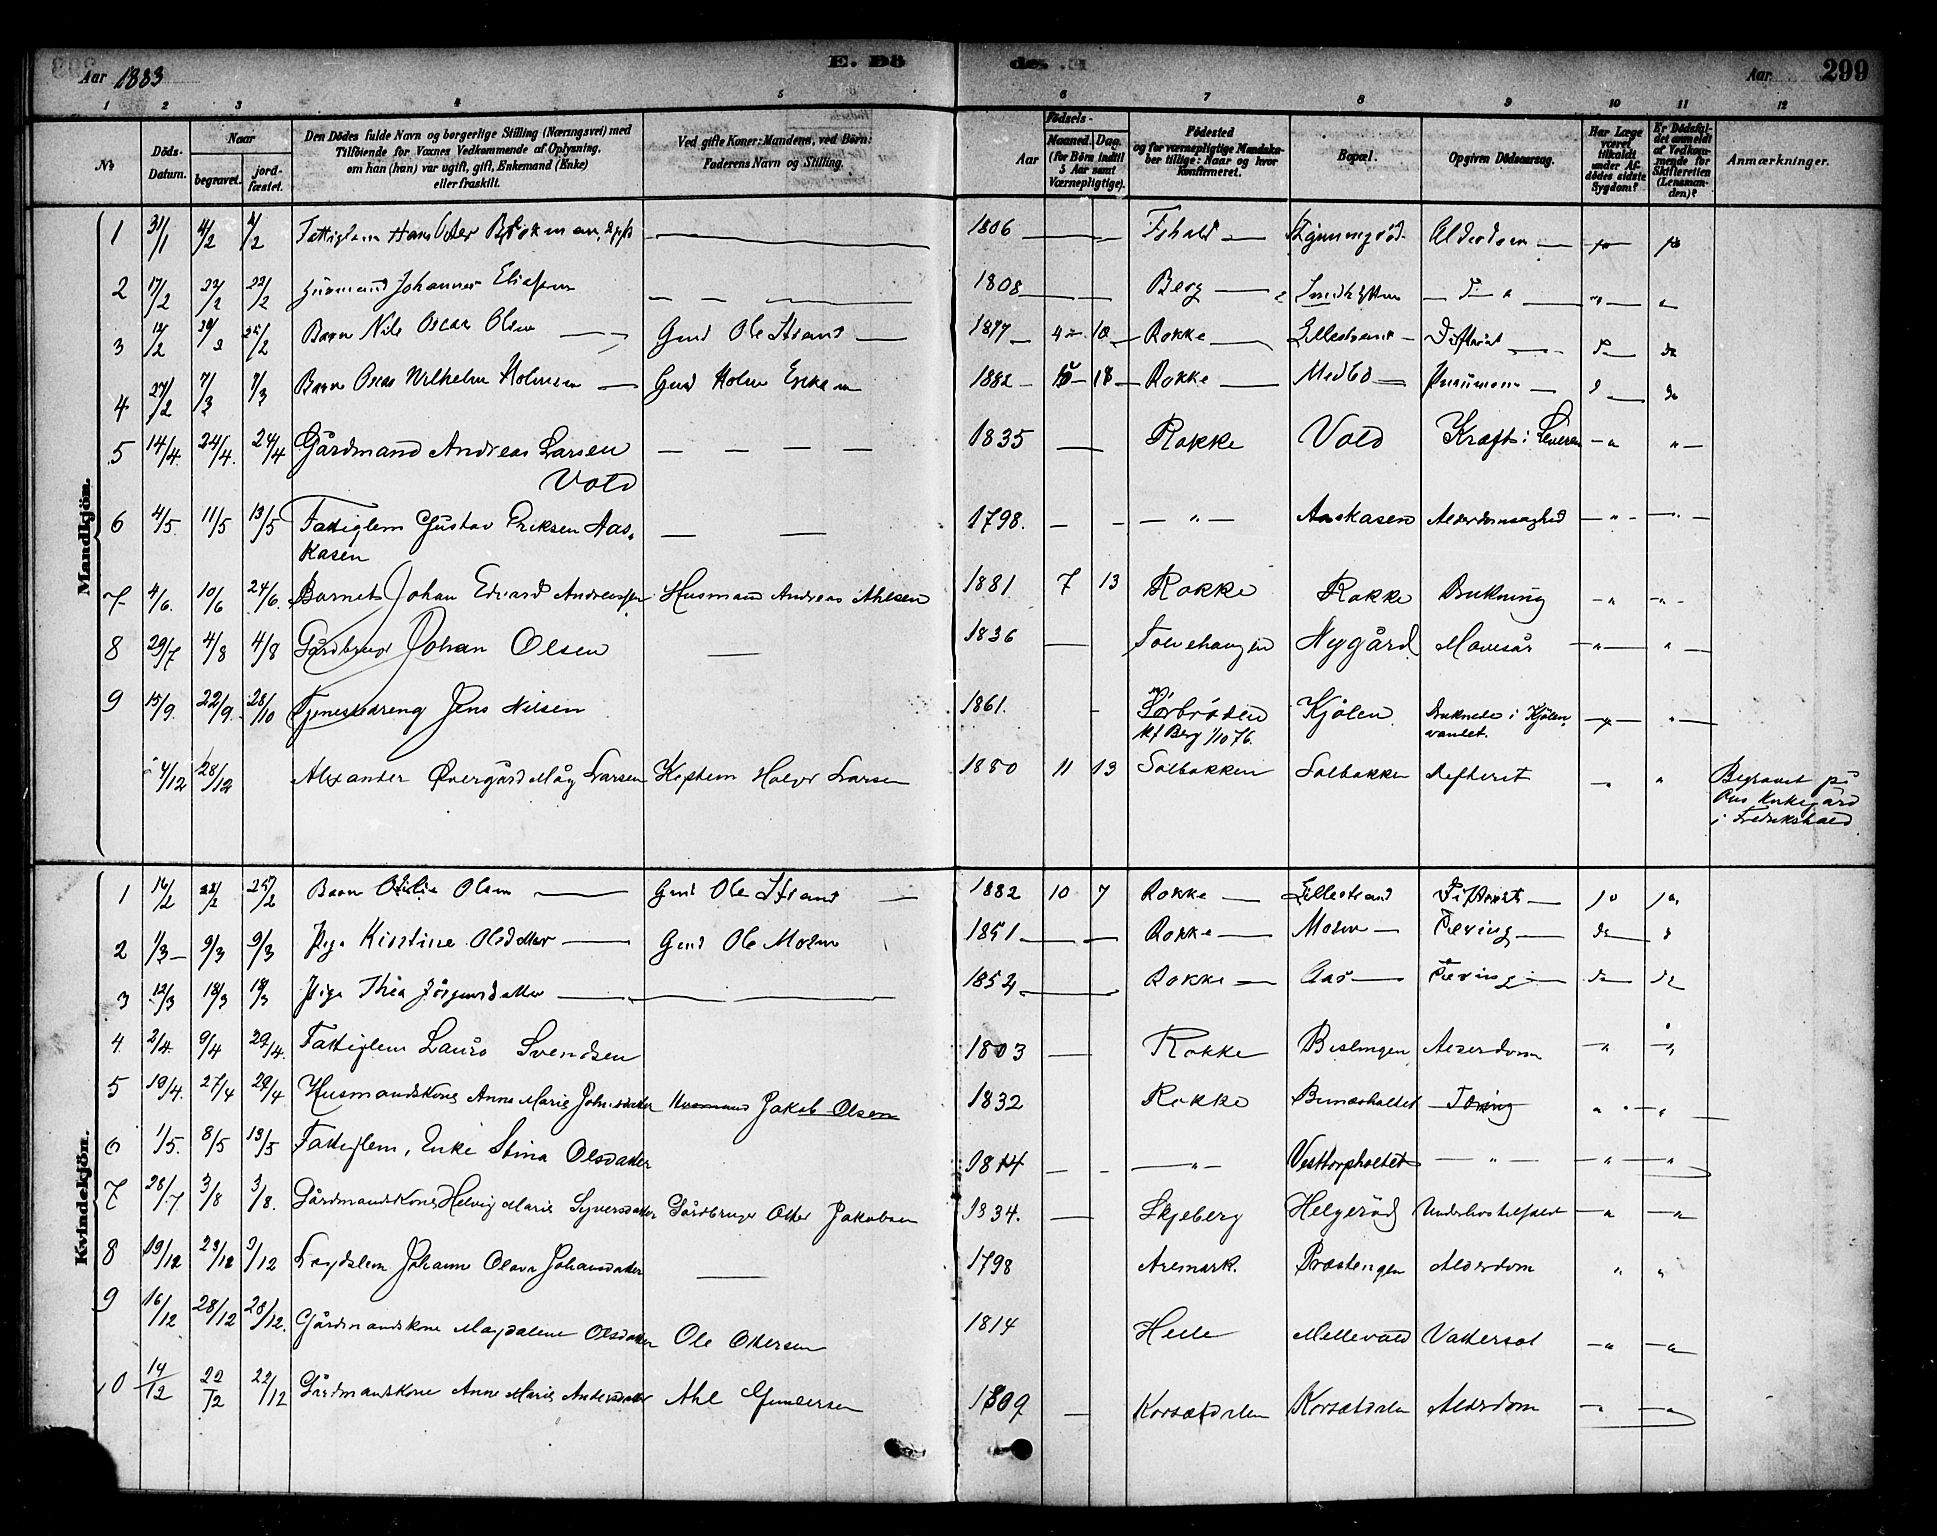 Aar 1883 E. Dö de. Aar 299
1 2 3 4 5 6 7 8 9 10 11 12
No Döds-Datum. Naar begravet. jordfæstet. Den Dödes fulde Navn og borgerlige Stilling (Næringsvei) med Tilföiende for Voxnes Vedkommende af Oplysning, om han (hun) var ugift, gift, Enkemand (Enke) eller fraskilt. Ved gifte Koner: Mandens, ved Börn: Faderens Navn og Stilling. Födsels- Aar Maaned. Dag. (for Börn indtil 5 Aar samt Værnepligtige). Födested og for værnepligtige Mandskaber tillige: Naar og hvor konfirmeret. Bopæl. Opgiven Dödsaarsag. Har Læge været tilkaldt under Afdödes sidste Sygdom? Er Dödsfaldet anmeldt af Vedkommende for Skifteretten (Lensmanden)? Anmærkninger.
Mandkjön.
1 31/1 4/2 4/2 Fattiglem Hans 1806 Fshald Alderdom
2 17/2 22/2 22/2 Johannes Eliassen 1808 Berg
3 12/2 25/2 Barn Nils Oscar Olsen Gmd Ole Strand 1877 4 10 Rokke Lillestrand Difterit do
4 27/2 7/3 7/3 Barn Oscar Wilhelm Holmsen Gmd Holm Eriksen 1882 18 Rokke Medbö do
5 14/4. 24/4. 24/4 Gårdmand Andreas Larsen — — — — 1835 Rokke Vold Kræft i Leveren — " " —
Vold
6 4/5. 11/5 13/5 Fattiglem Gustav Eriksen Aas- — — 1798. — — — " — Aaskasen Alderdomssvaghed — " - — " —
kasen
7 4/6. 10/6 24/6. Barnet Johan Edvard Andreassen Husmand Andreas Ahlsen 1881. 7 13 Rokke Rokke Drukning — " — — " -
8 29/7 4/8 4/8 Gårdbruger Johan Olsen — 1836 — Torvehaugen Nygård Mavesår — " — " —
9 15/9. 22/9. 28/10 Tjenestedreng Jens Nilsen 1861. - Sørbrøden Kjølen Druknede i Kjølen-
kf Berg 1/10 76. vandet.
4/12 28/12 Alexander Øvergård Måg Larsen Kaptein Holger Larsen 1880 11 13 Solbakken Solbakken Difterit " " Begravet på
Os Kirkegård
i Fredrikshald
Kvindekjön.
1 16/2 22/2 25/2 Barn Olsen Gmd Ole Strand 1882 10 7 Rokke Lillestrand Difterit ja
2 1/3 9/3 9/3 Pige Kirstine Olsdatter Gmd Ole Molin 1851 Rokke Tæring do
3 12/3 18/3 18/3 Pige Thea Jörgensdatter 1852 Rokke Aas Tæring do do
4. 2/4. 9/4 29/4. Fattiglem Lauro Svendsen 1803 — Rokke Bislingen Alderdom — " — "
5 19/4. 27/4 29/4 Husmandskone Anne Marie Johnsdatter Husmand Jakob Olsen 1832 Rokke Tæring " "
6 1/5. 8/5 13/5 Fattiglem, Enke Stina Olsdatter 1814 — - — " — Vesttorpholtet — " — — " — — " —
7 28/7 3/8 3/8. Gårdmandskone Helvig Marie Syversdatter Gårdbruger Otter Jakobsen 1834. — Skjeberg Helgerød Underlivstilfælde — " — "
8 19/12 23/12 3/12 Lægdslem Johanne Olava Johansdatter — 1798 Aremark. Præstengen Alderdom " "
9 16/12 28/12 28/12. Gårdmandskone Magdalene Olsdatter Ole Ottersen 1814 Hele Mellevold Vattersot — " — "
10 14/12 22/12 22/12 Gårdmandskone Anne Marie Andersdatter Ahl Gundersen 1809 — Korsætdalen Korsætdalen Alderdom — " — "